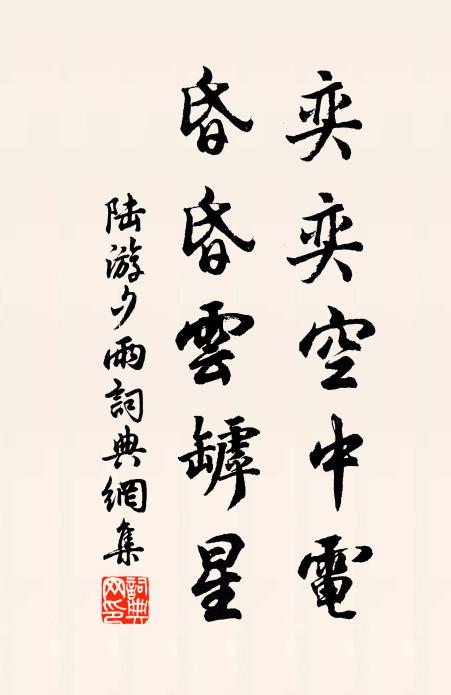 奕奕空中電
昏昏雲罅星
陸游夕雨詞典網集
詞典网印